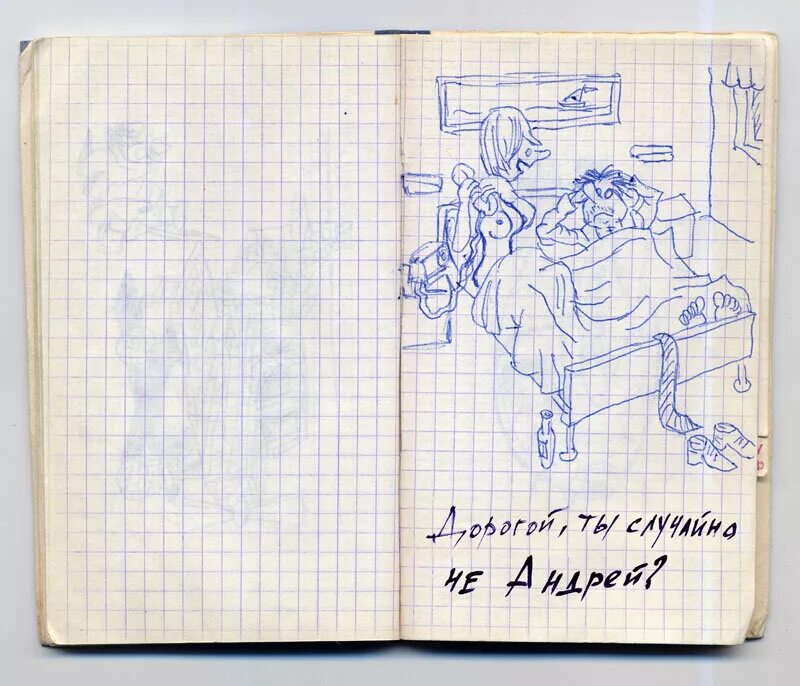 Дорогой, ты случайно
не Андрей?